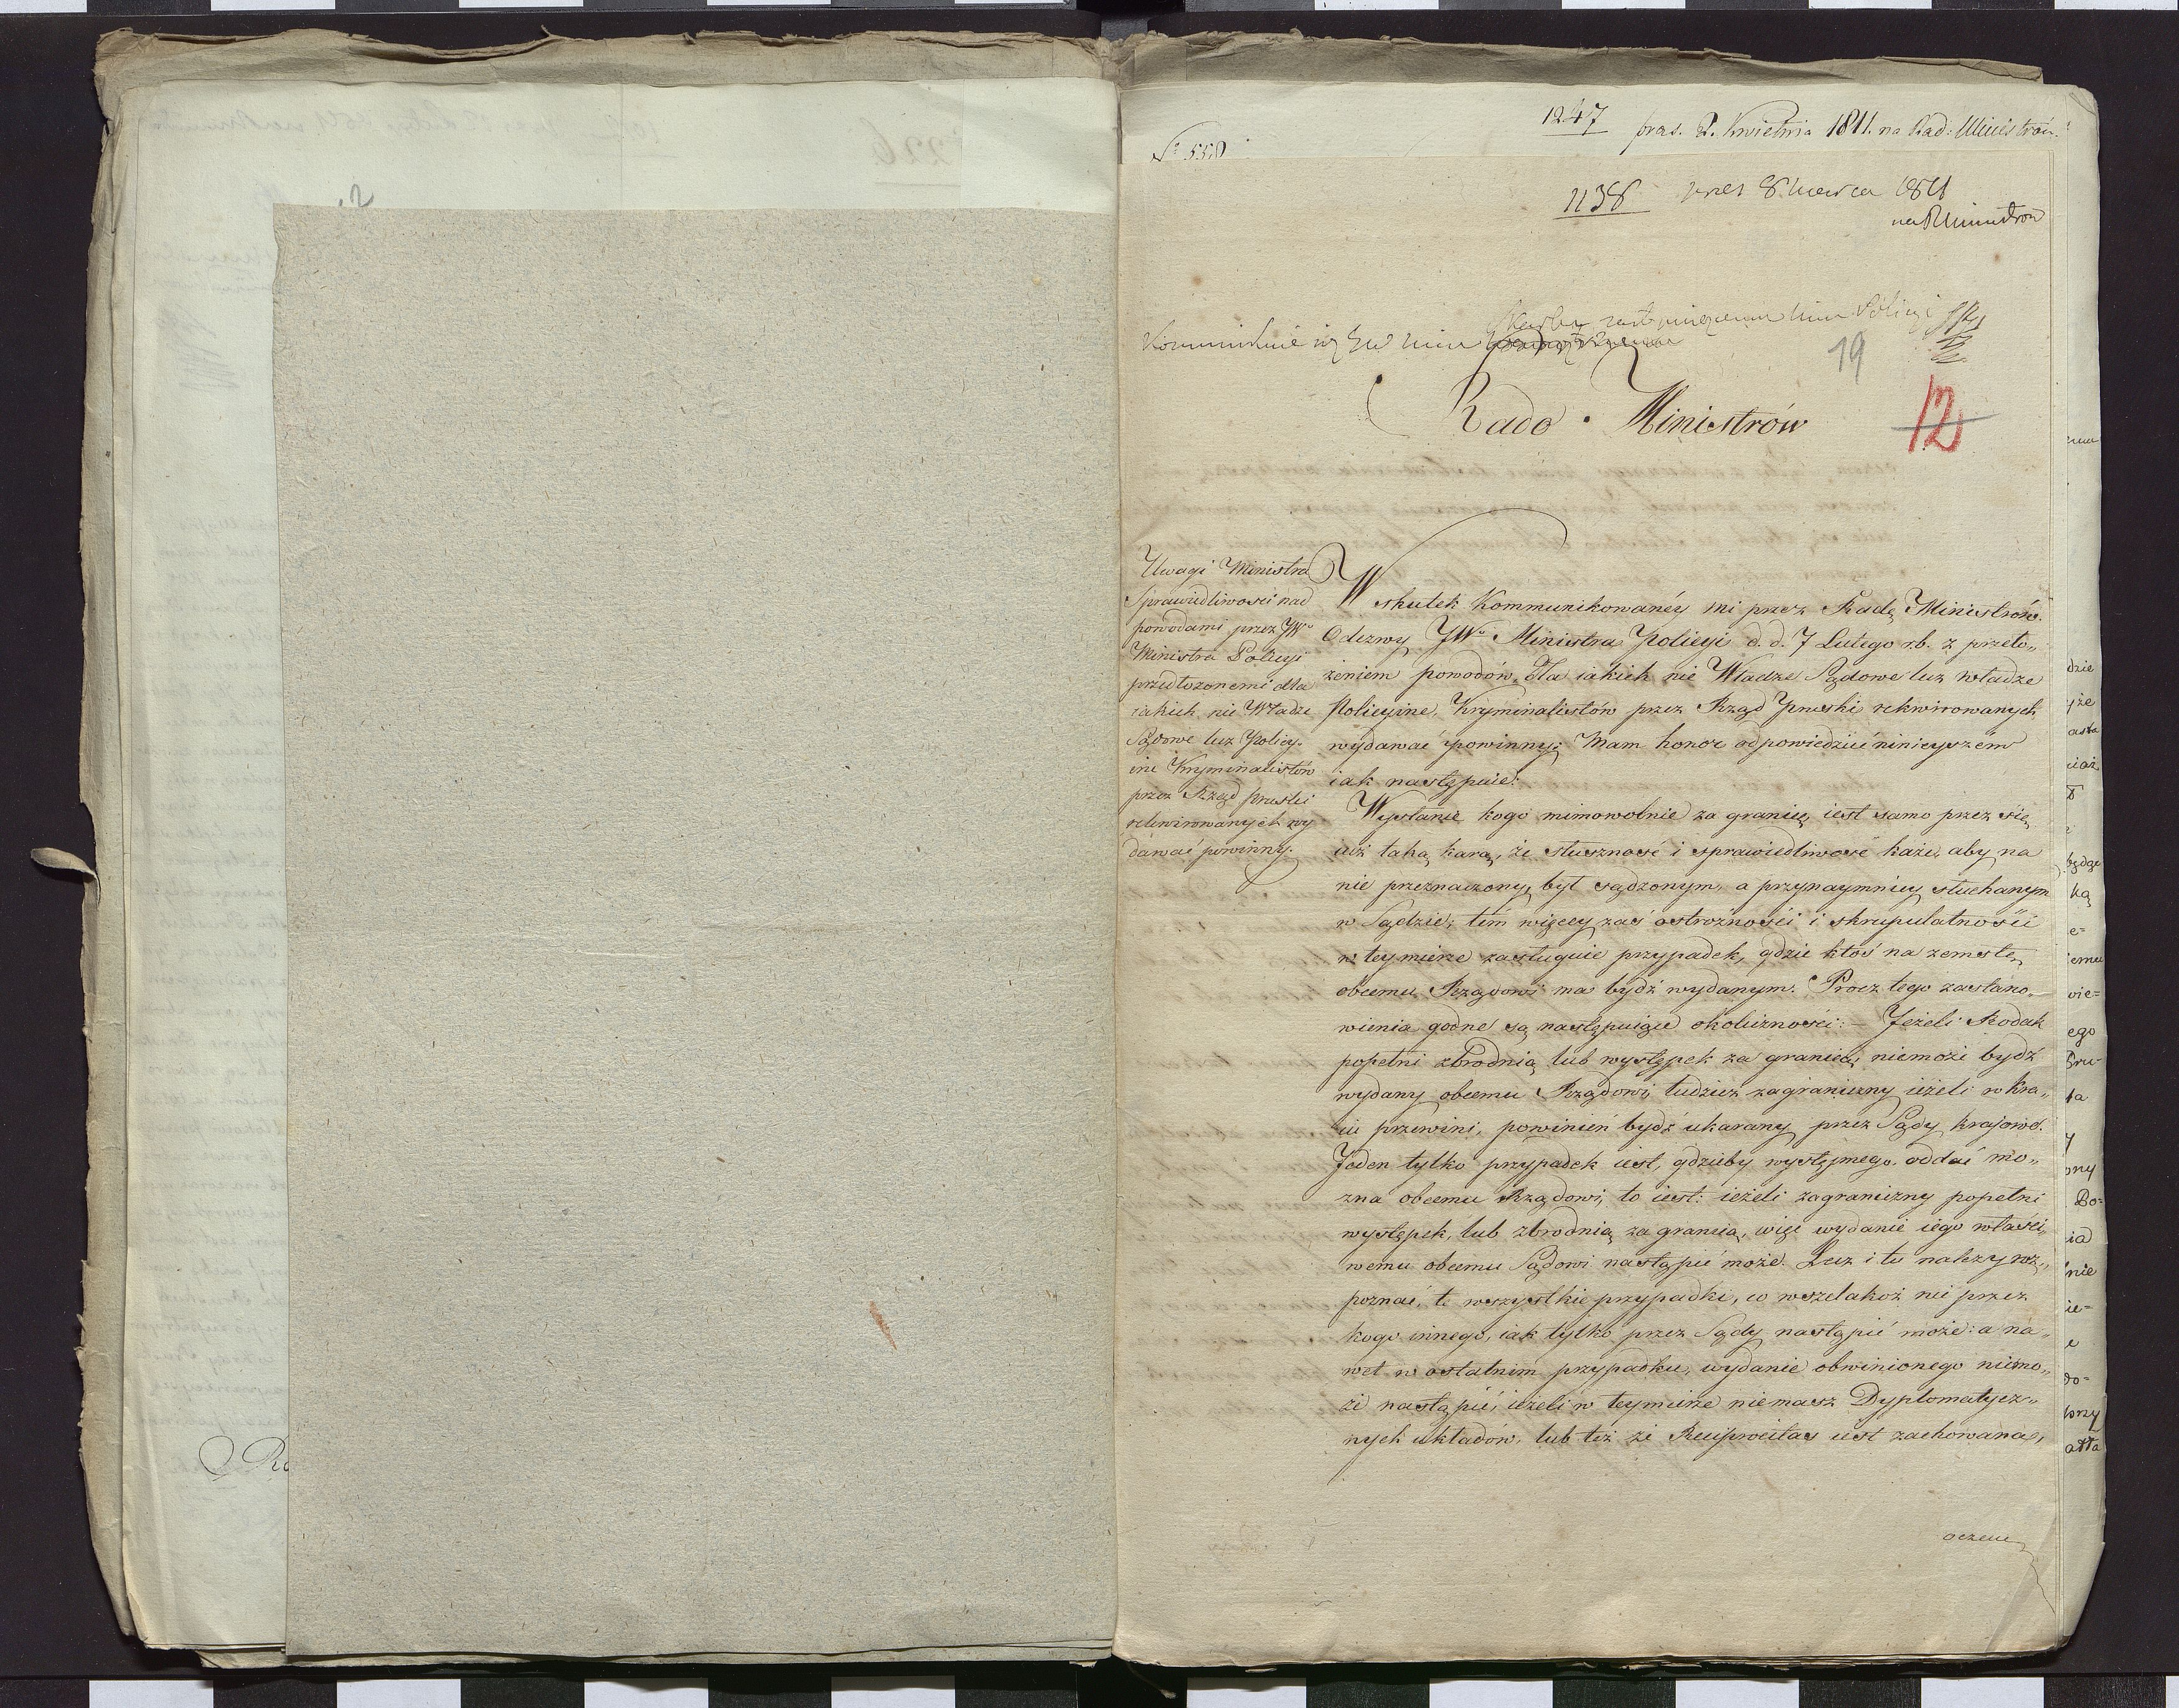 1247 pras. 2. Kwietnia 1811. na Rad: Ministrów
N: 558
1138 pres 8 Marca 1811
na R Ministrów
Skarbu zastępującemu Min Policyi
Kommunikuie się JW Min
19
12
Rado Ministrów
Uwagi Ministra
Sprawiedliwosci nad
powodami przez JWo
Ministra Policyi
przedłożonemi dla
iakich nie Władze
Sądowe lecz Policy-
ine Kryminalistów
przez Rząd pruski
rekwirowanych wy
dawać powinny.
W skutek Kommunikowanéy mi przez Radę Ministrów
Odezwy JWo Ministra Policyi d. d. 7 Lutego r.b. z przeło„
żeniem powodów, Dla iakich nie Władze Sądowe lecz władze
Policyine, Kryminalistów przez Rząd Pruski rekwirowanych
wydawać powinny; Mam honor odpowiedzieć ninieyszém
iak następuie:
Wysłanie kogo mimowolnie za granicę, iest samo przez się
iuż taką karą, że słuszność i sprawiedliwość każe, aby na
nie przeznaczony, był sądzonym, a przynaymniey słuchanym
w Sądzie; tém więcey zaś ostrożności i skrupulatności
w teymierze zasługuie przypadek, gdzie ktoś na zemstę
obcemu Rządowi ma bydź wydanym. Procz tego zastano„
wienia godne są następuiące okoliczności: – Jeżeli Rodak
popełni zbrodnią lub występek za granicą, niemoże bydź
wydany obcemu Rządowi, tudzież zagraniczny ieżeli w kra„
iu przewini, powinien bydź ukarany przez Sądy krajowe.
Jeden tylko przypadek iest, gdzieby występnego oddać mo„
żna obcemu Rządowi, to iest: ieżeli zagraniczny popełni
występek, lub zbrodnią za granicą, więc wydanie iego właści„
wemu obcemu Sądowi nastąpić może. Lecz i tu należy roz„
poznać, te wszystkie przypadki, co wszelakoż nie przez
kogo innego, iak tylko przez Sądy nastąpić może: a na„
wet w ostatnim przypadku, wydanie obwinionego niemo„
że nastąpić, ieżeli w teymierze niemasz Dyplomatycz„
nych układów, lub też że Reciprocitas iest zachowana,
oczem